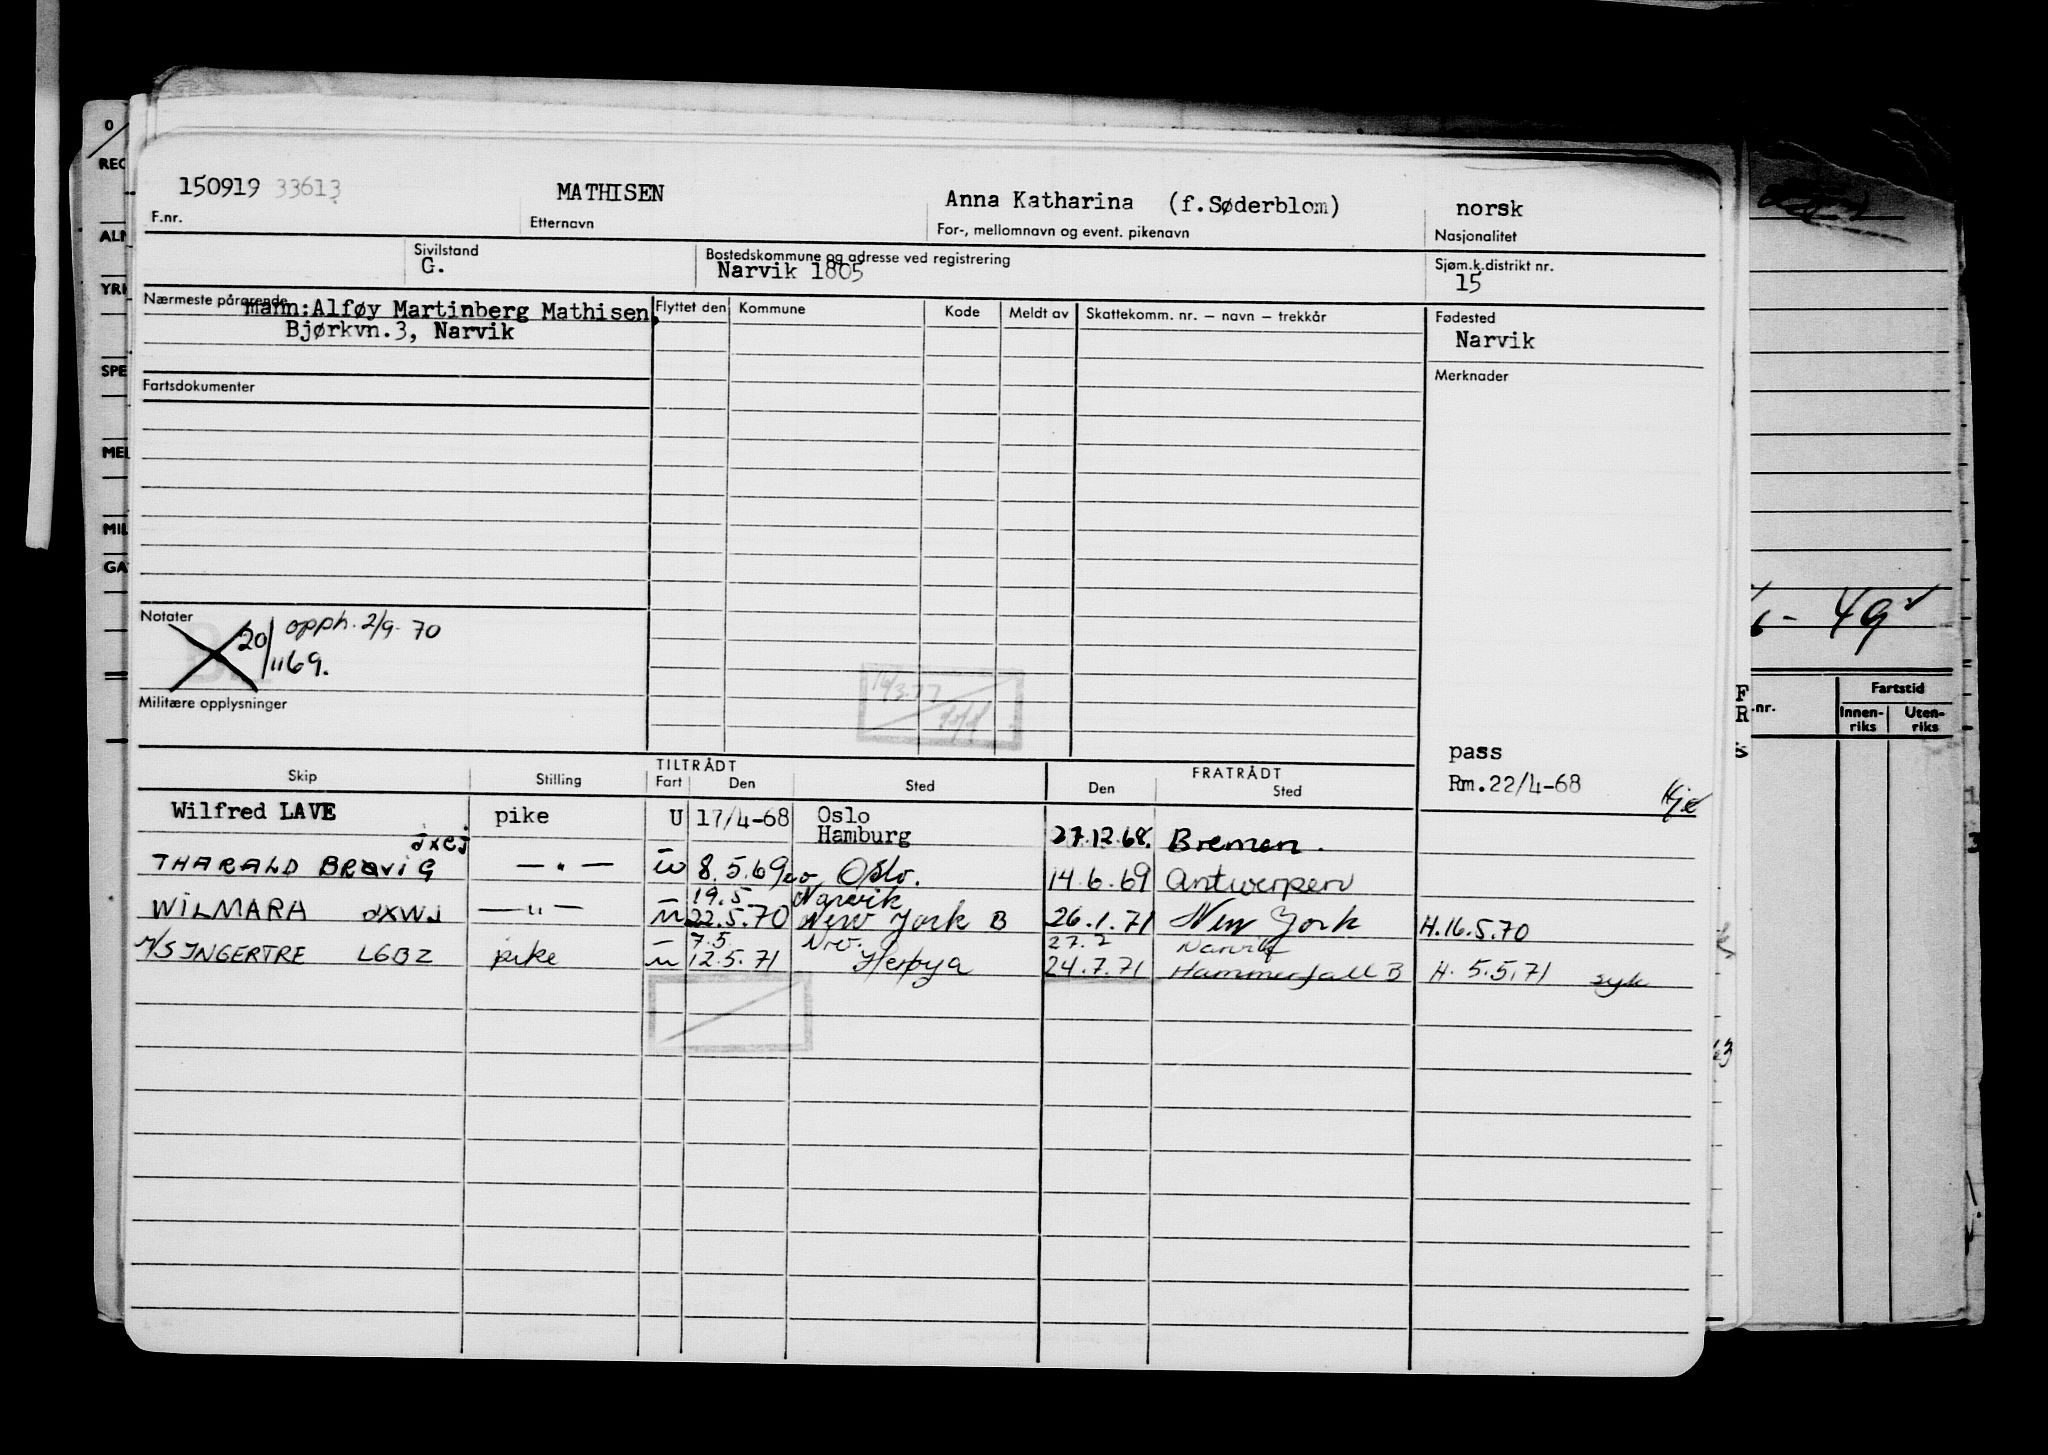 150919 33613 MATHISEN Anna Katharina (f.Søderblom) norsk
F.nr. Etternavn For-, mellomnavn og event. pikenavn Nasjonalitet
Sivilstand Bostedskommune og adresse ved registrering Sjøm.k.distrikt nr.
G. Narvik 1805 15
Nærmeste pårørende Flyttet den Kommune Kode Meldt av Skattekomm. nr. — navn — trekkår Fødested
mann:Alføy Martinberg Mathisen,
Bjørkvn.3, Narvik Narvik
Fartsdokumenter Merknader
Notater
20/11 69. opph. 2/9-70
Militære opplysninger
16/3.77
pass
Rm.22/4-68
TILTRÅDT FRATRÅDT
Skip Stilling Fart Den Sted Den Sted
Wilfred LAVE pike U 17/4-68 Oslo
Hamburg 27.12.68. Bremen.
JXCJ
THARALD BRØVIG —"— U 8.5.69 Oslo. 14.6.69 Antwerpen
19.5 Narvik
WILMARA JXWJ —"— U 22.5.70 New York B 26.1.71 New York H.16.5.70
7.5 Nrv. 27.7 Narvik
M/S INGERTRE LGBZ pike U 12.5.71 Herøya 24.7.71 Hammerfall B H. 5.5.71 syk
0
REG
ALM
YRK
SPE
MEL
MIL
GA
- 49
Fartstid
.nr. Innen-riks Uten-riks
F
R
S